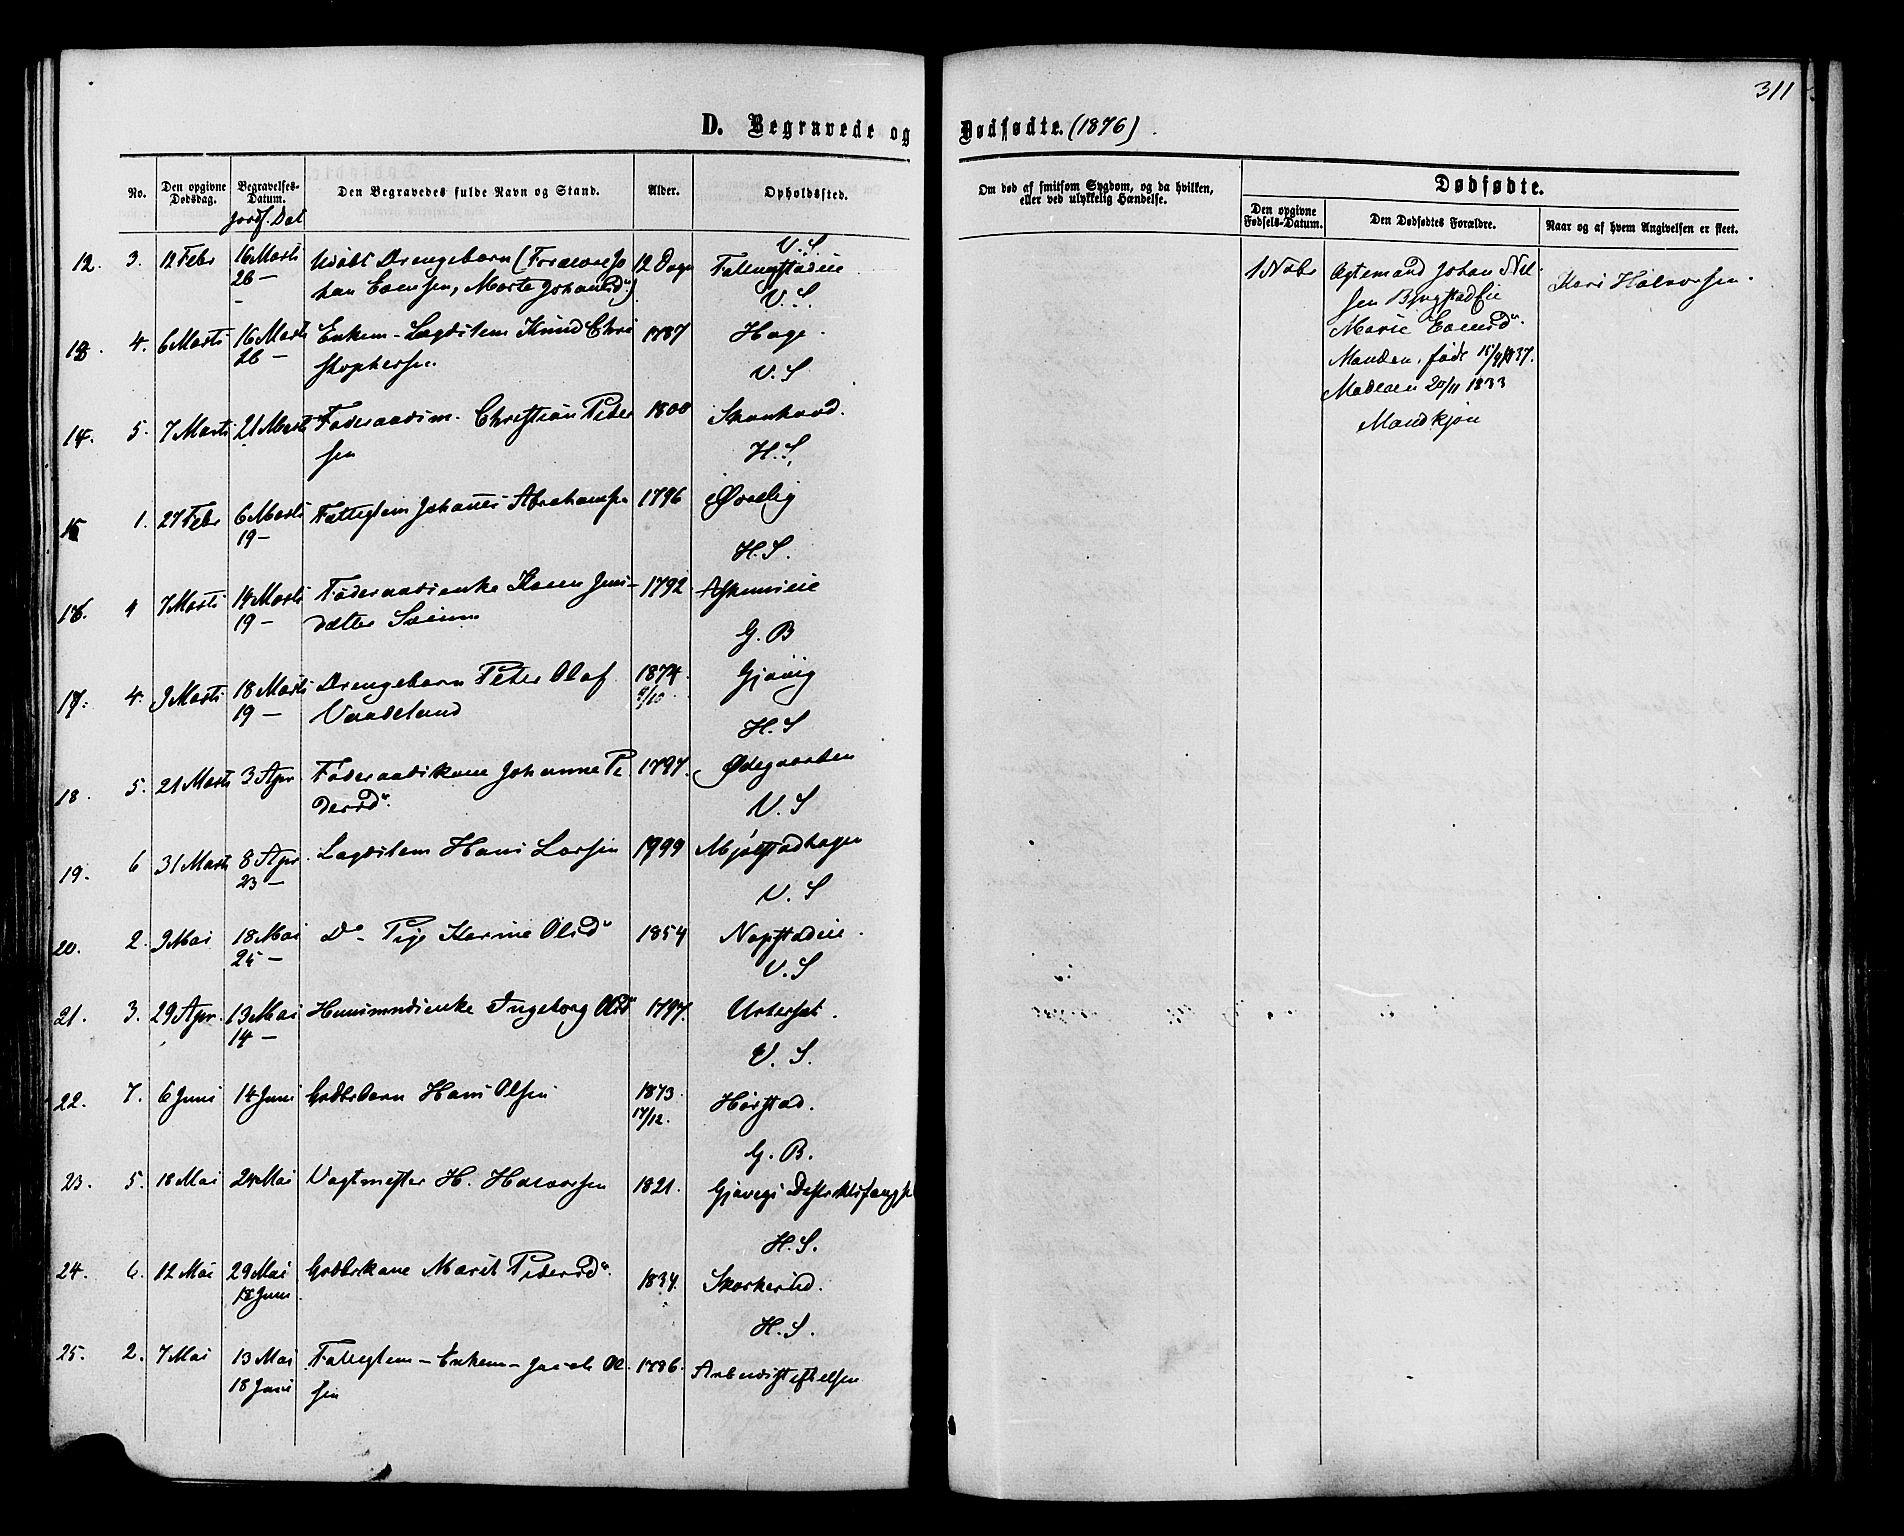 311
D. Begravede og Dødfødte. (1876).
No. | Den opgivne Dødsdag. | Begravelses-Datum. Jordf. Dat | Den Begravedes fulde Navn og Stand. | Alder. | Opholdssted.
Om død af smitsom Sygdom, og da hvilken, eller ved ulykkelig Hændelse.
Dødfødte.
Den opgivne Fødsels-Datum. | Den Dødfødtes Forældre. | Naar og af hvem Angivelsen er skeet.
V. S
12. 3. 12 Febr 16 Marts Udøbt Drengebarn (Forældre Jo 12 Dage
26 – han Evensen, Marte Johansd.)
V. S.
13. 4. 6 Marts 16 Marts Enkem. – Lægdslem Knud Chri 1787 Hage
26 – stophersen
V. S
14. 5. 7 Marts 21 Marts Føderaadsm. Christian Peder 1800
sen
H. S.
15 1. 27 Febr 6 Marts Fattiglem Johanes Abrahamsen 1796
19 –
H. S.
16. 4 7 Marts 14 Marts Føderaadsenke Karen Jens– 1792
19 – datter
G. B
17. 4. 9 Marts 18 Marts Drengebarn Peter Olaf 1874 Gjøvig
19 – 9/10
H. S
18. 5. 21 Marts 3 Apr Føderaadskone Johanne Pe 1797. Ødegaarden
dersd.
V. S
19. 6 31 Marts 8 Apr Lægdslem Hans Larsen 1799 Mjølstadhagen
23 –
V. S
20. 2. 9 Mai 18 Mai Do – Pige Karine Olsd 1854
25 –
V. S
21. 3. 29 Apr. 13 Mai Huusmandsenke Ingeborg Olsd 1797.
14 –
V. S.
22. 7. 6 Juni 14 Juni Gaardbr.barn Hans Olsen 1873 Hørstad.
17/12.
G. B.
23. 5. 18 Mai 24 Mai Vagtmester H. Halvorsen 1821. Gjøvigs Distriktsfængsel
H. S.
24. 6. 12 Mai 29 Mai Gaardbr.kone Marit Pedersd 1834.
18 Juni
H. S.
25. 2. 7 Mai 13 Mai Fattiglem – Enkem – Jacob Ol 1786. Arbeidsstiftelsen
18 Juni sen
1 Nobr Ægtemand Johan Niel Kari Halvorsen.
sen Byrgstadeie
Marie Evensd.
Manden født 15/9 1837.
Moderen 20/11 1833
Mandkjøn